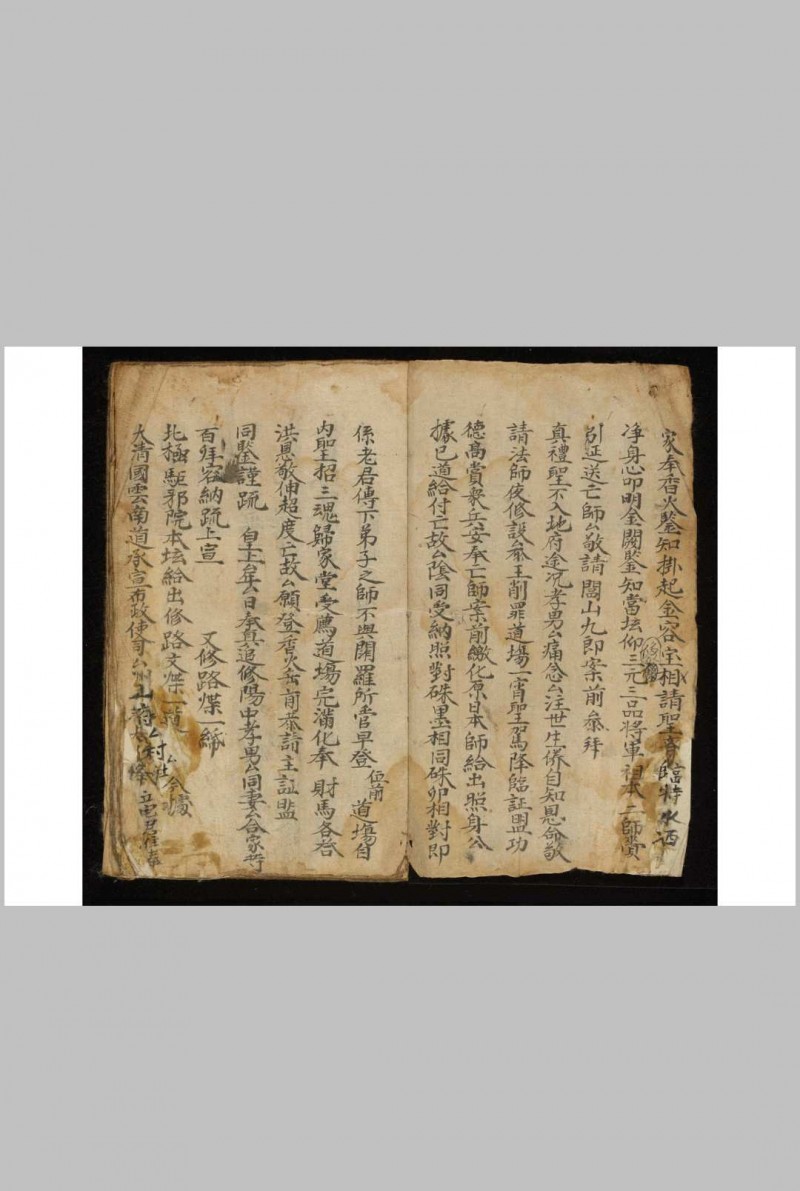 家奉香火鑒知掛起金容宝相請聖臨特水洒
净身心叩明金闕鑒知當坛仰三元三品將軍祖本二師賫
引延送亡師厶敬請閭山九郎案前叅拜
真禮聖不入地府途况孝男厶痛念厶注世生係自知恩命敬
請法師侯修設叅王削罪道場一宵聖駕降臨証盟功
德高賞衆兵安奉亡師案前繳化原日本師給出照身公
據已道給付亡故厶陰同受納照對硃墨相同硃卯相對即
係老君傳下弟子之師不與閻羅所管早登位前道塲自
内聖招三魂歸家堂受薦道塲完滿化奉財馬各答
洪恩敬伸超度亡故厶願登香火案前恭請主証盟
同鑒謹疏 皇上厶年厶日本真追修陽中孝男厶同妻厶合家等
百拜容納疏上宣 又修路牒一綈
北極驅邪院本坛給出修路文牒一 厶 今據
大清國雲南道承宣布政使司厶州厶府 村 奉